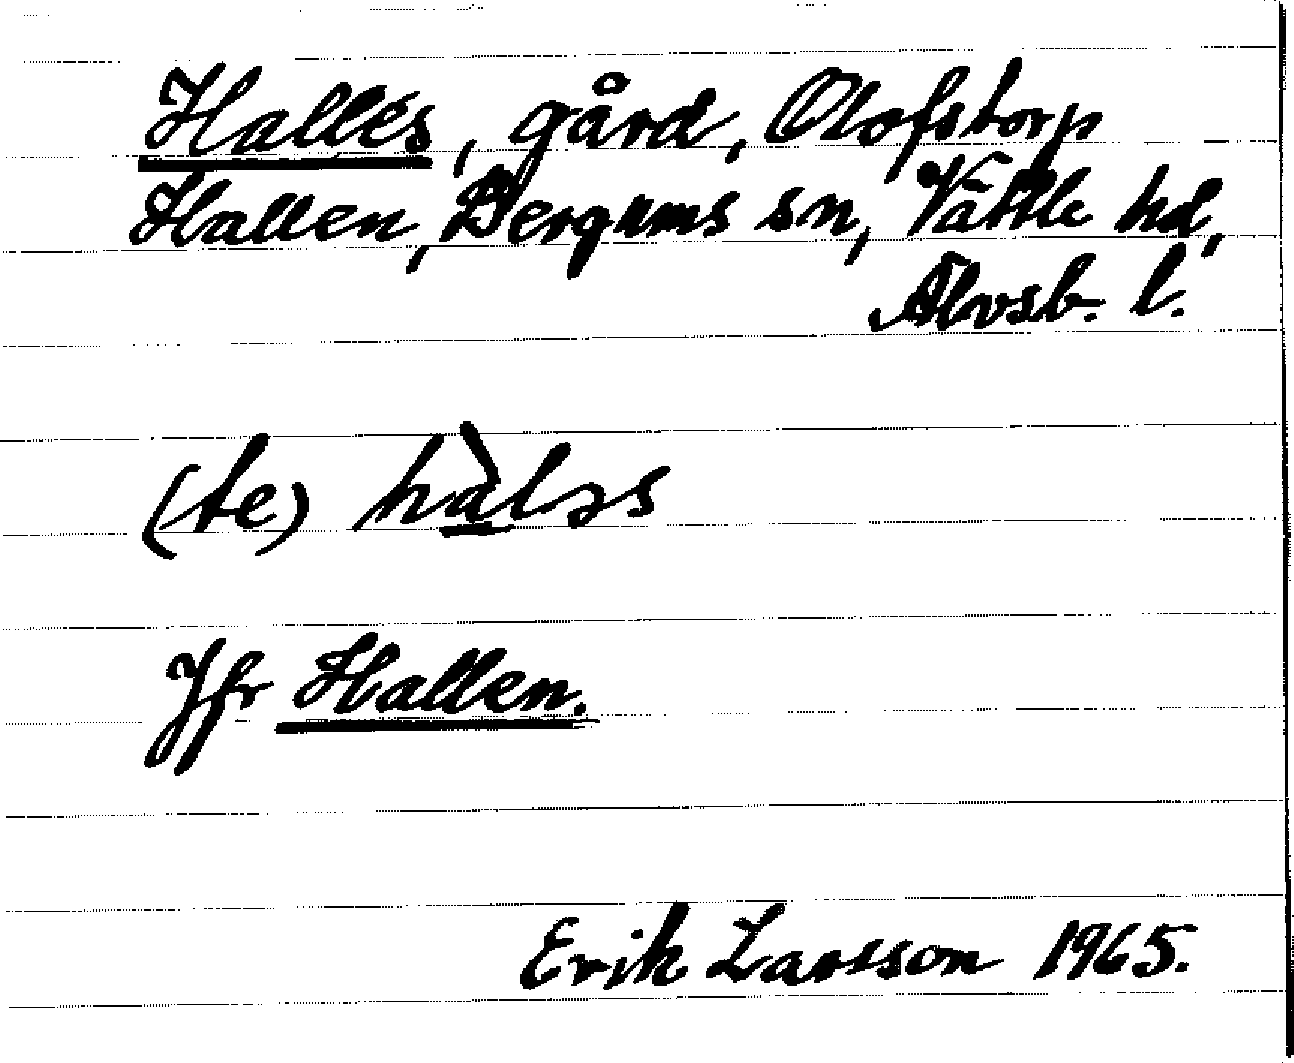 Hallés, gård, Olofstorp
Hallen, Bergums sn, Vättle hd,
Älvsb. l.
(te)
Jfr Hallen.
Erik Larsson 1965.